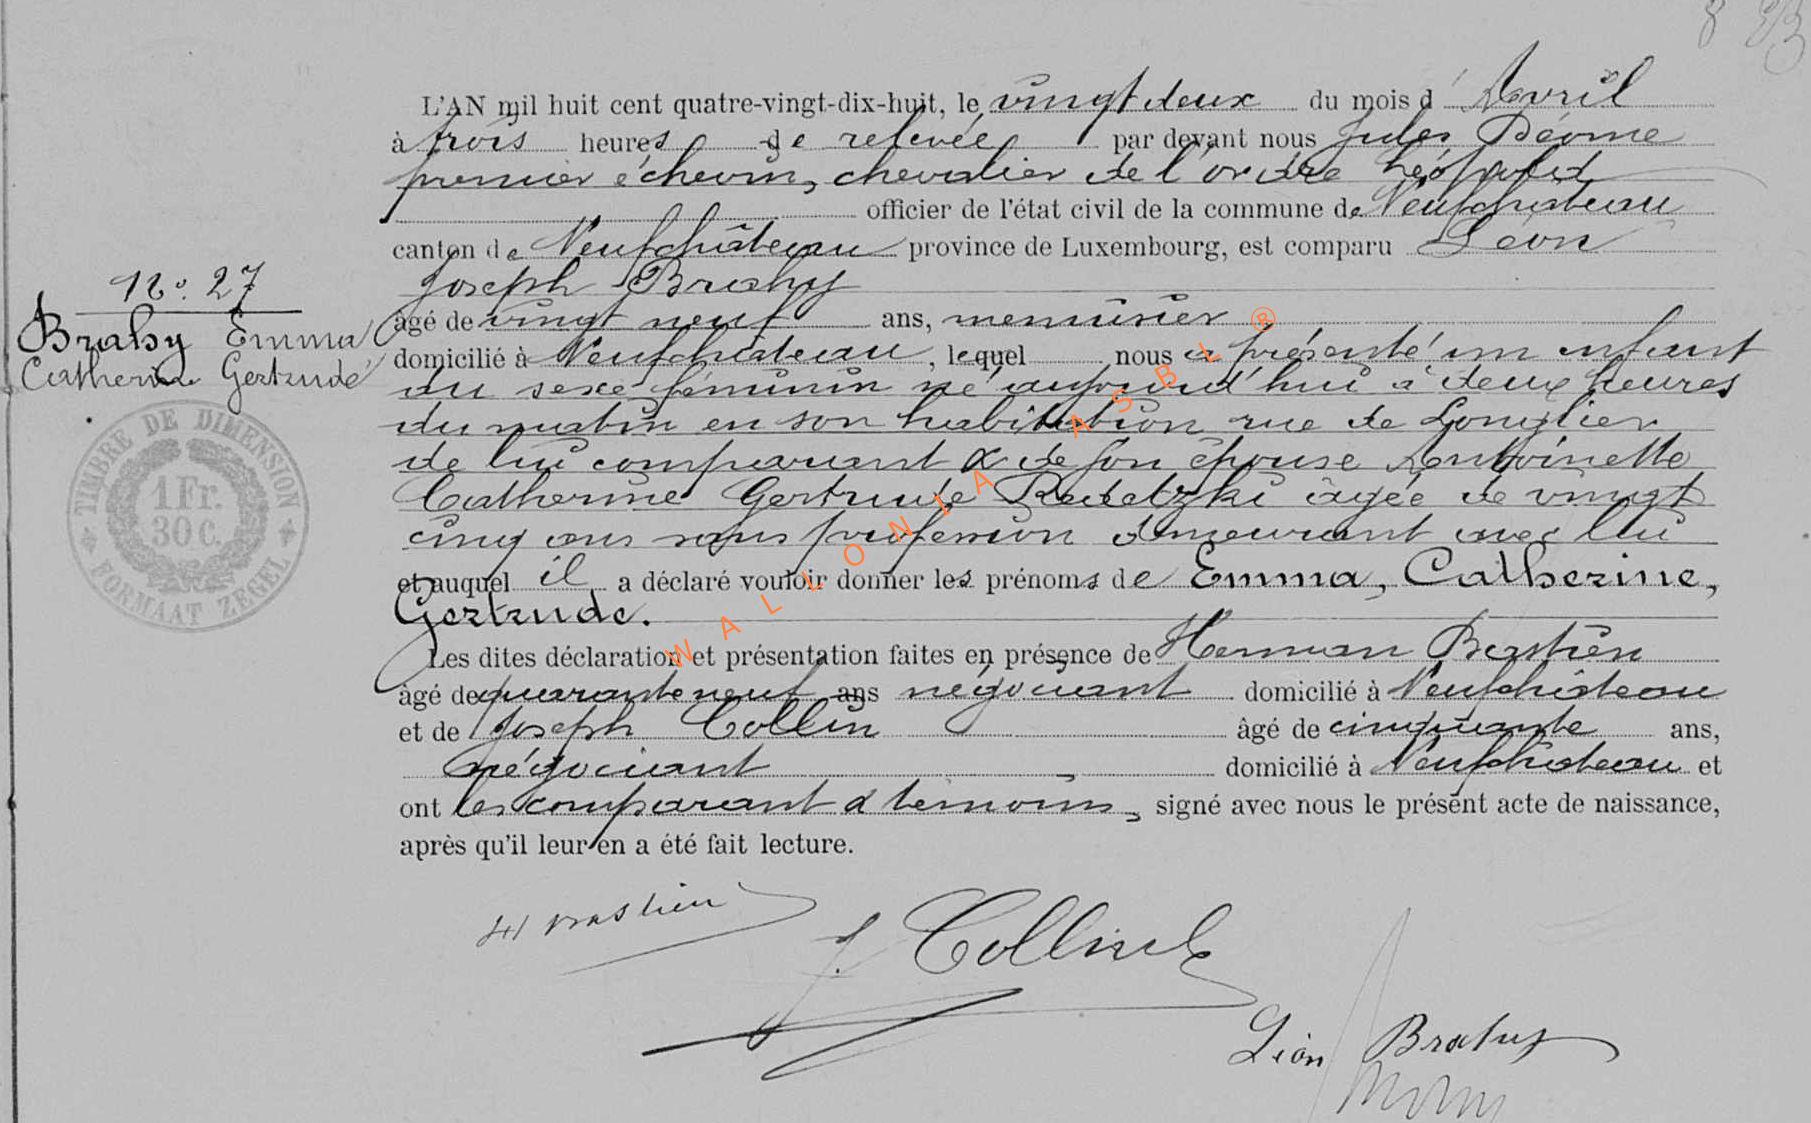 8
L'AN mil huit cent quatre-vingt-dix-huit, le vingt deux du mois d' Avril
à trois heures de relevée par devant nous Jules Déome
premier échevin, chevalier de l'ordre Léopold
officier de l'état civil de la commune de Neufchâteau
canton de Neufchâteau province de Luxembourg, est comparu Léon
Joseph Brahy
âgé de vingt neuf ans, menuisier
domicilié à Neufchâteau, lequel nous a présenté un enfant
du sexe féminin né aujourd'hui à deux heures
du matin en son habitation rue de Longlier
de lui comparant & de son épouse Antoinette
Catherine Gertrude Radetzki âgée de vingt
cinq ans sans profession demeurant avec lui
et auquel il a déclaré vouloir donner les prénoms de Emma, Catherine,
Gertrude.
Les dites déclaration et présentation faites en présence de Herman Bastien
âgé de quarante neuf ans négociant domicilié à Neufchâteau
et de Joseph Collin âgé de cinquante ans,
négociant domicilié à Neufchâteau et
ont les comparant & témoins, signé avec nous le présent acte de naissance,
après qu'il leur en a été fait lecture.
No. 27
Brahy Emma
Catherine Gertrude
TIMBRE DE DIMENSION
1 Fr.
30 C.
FORMAAT ZEGEL
WALLONIA ASBL ®
H Bastien
J. Collin
Léon Brahy